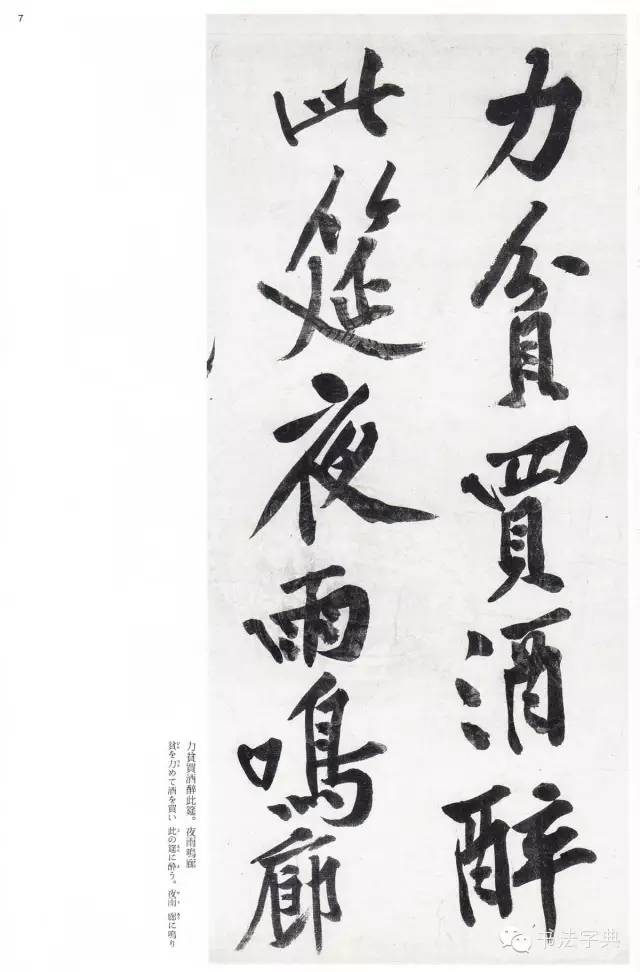 7
力貧買酒醉
此筵夜雨鳴廊
力貧買酒醉此筵。夜雨鳴廊
貧を力めて酒を買い 此の筵に醉う。夜雨 廊に鳴り
书法字典